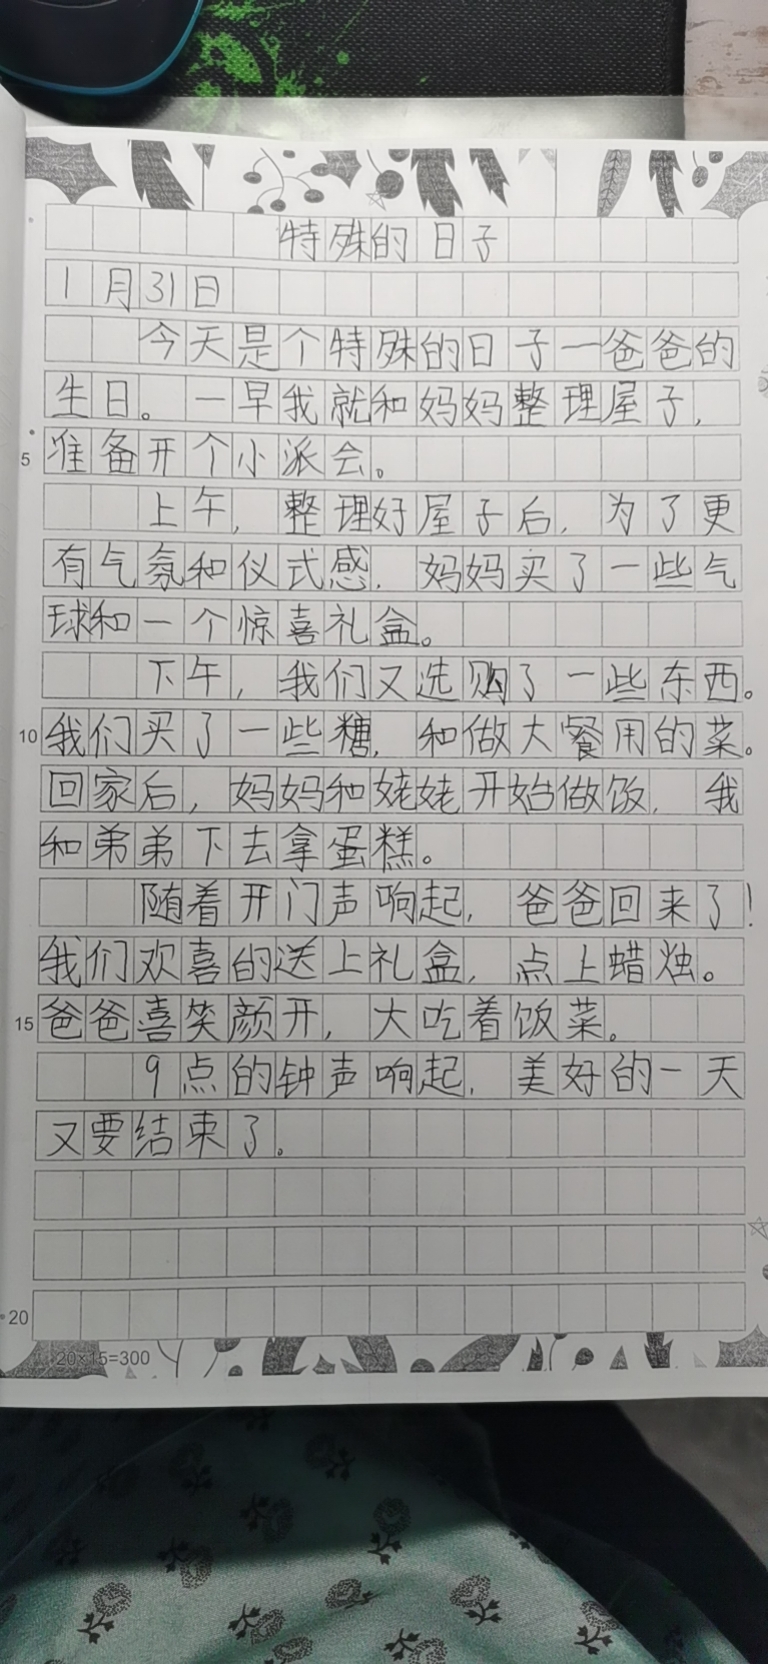 特殊的日子
1月31日
今天是个特殊的日子一爸爸的
生日。一早我就和妈妈整理屋子,
5 准备开个小派会。
上午,整理好屋子后,为了更
有气氛和仪式感,妈妈买了一些气
球和一个惊喜礼盒。
下午,我们又选购了一些东西。
10 我们买了一些糖,和做大餐用的菜。
回家后,妈妈和姥姥开始做饭,我
和弟弟下去拿蛋糕。
随着开门声响起,爸爸回来了!
我们欢喜的送上礼盒,点上蜡烛。
15 爸爸喜笑颜开,大吃着饭菜。
9点的钟声响起,美好的一天
又要结束了。
20
20×15=300